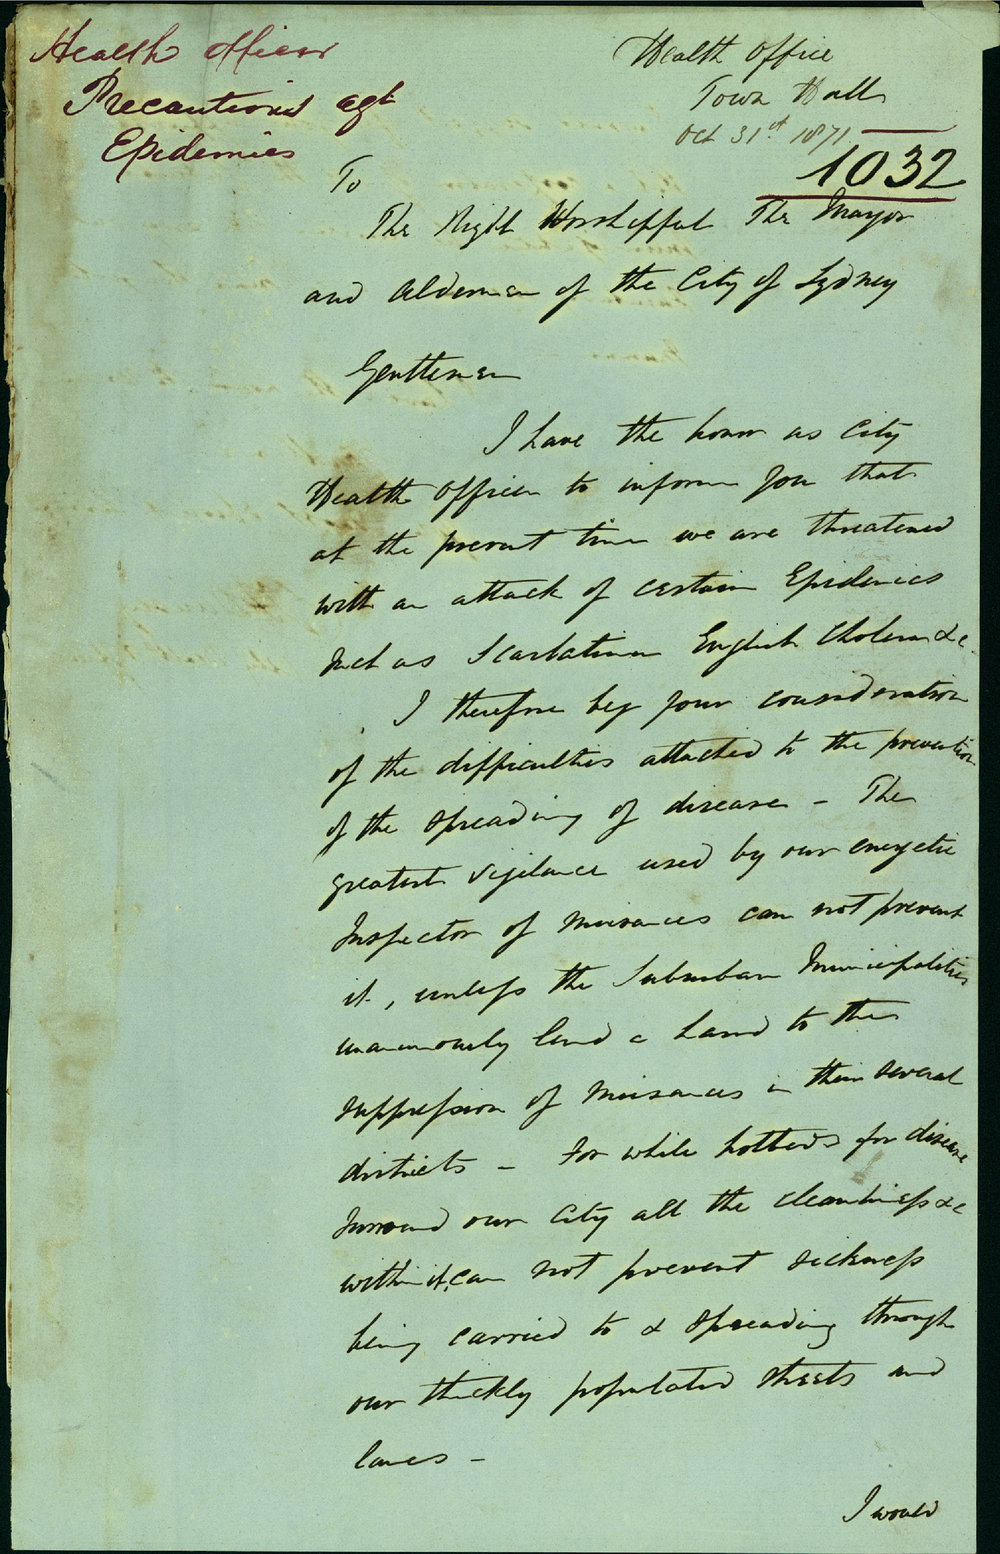 Health Officer
Precautions agt
Epidemics
Health Office
Town Hall
Oct 31st 1871
1032
To
The Right Worshipful The Mayor
and Aldermen of the City of Sydney
Gentlemen
I have the honor as City
Health Officer to inform you that
at the present time we are threatened
with an attack of certain Epidemics
such as Scarlatina English Cholera &c.
I therefore beg your consideration
of the difficulties attached to the prevention
of the spreading of disease - The
greatest vigilance used by our energetic
Inspector of Nuisances can not prevent
it, unless the Suburban Municipalities
unanimously lend a hand to the
suppression of Nuisances in their several
districts - For while hotbeds for disease
surround our City all the cleanliness &c
within it, can not prevent sickness
being carried to & spreading through
our thickly populated streets and
lanes -
I would